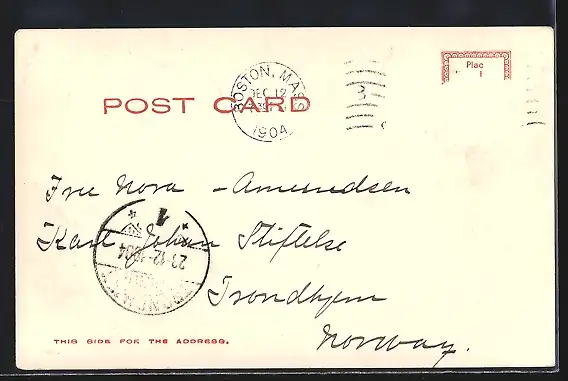 BOSTON, MASS
DEC 12
1904
Plac
1
POST CARD
Frue Nora - Amundsen
Karl Johan Stiftelse
Trondhjem
Norway.
1
23-12-1904
THIS SIDE FOR THE ADDRESS.